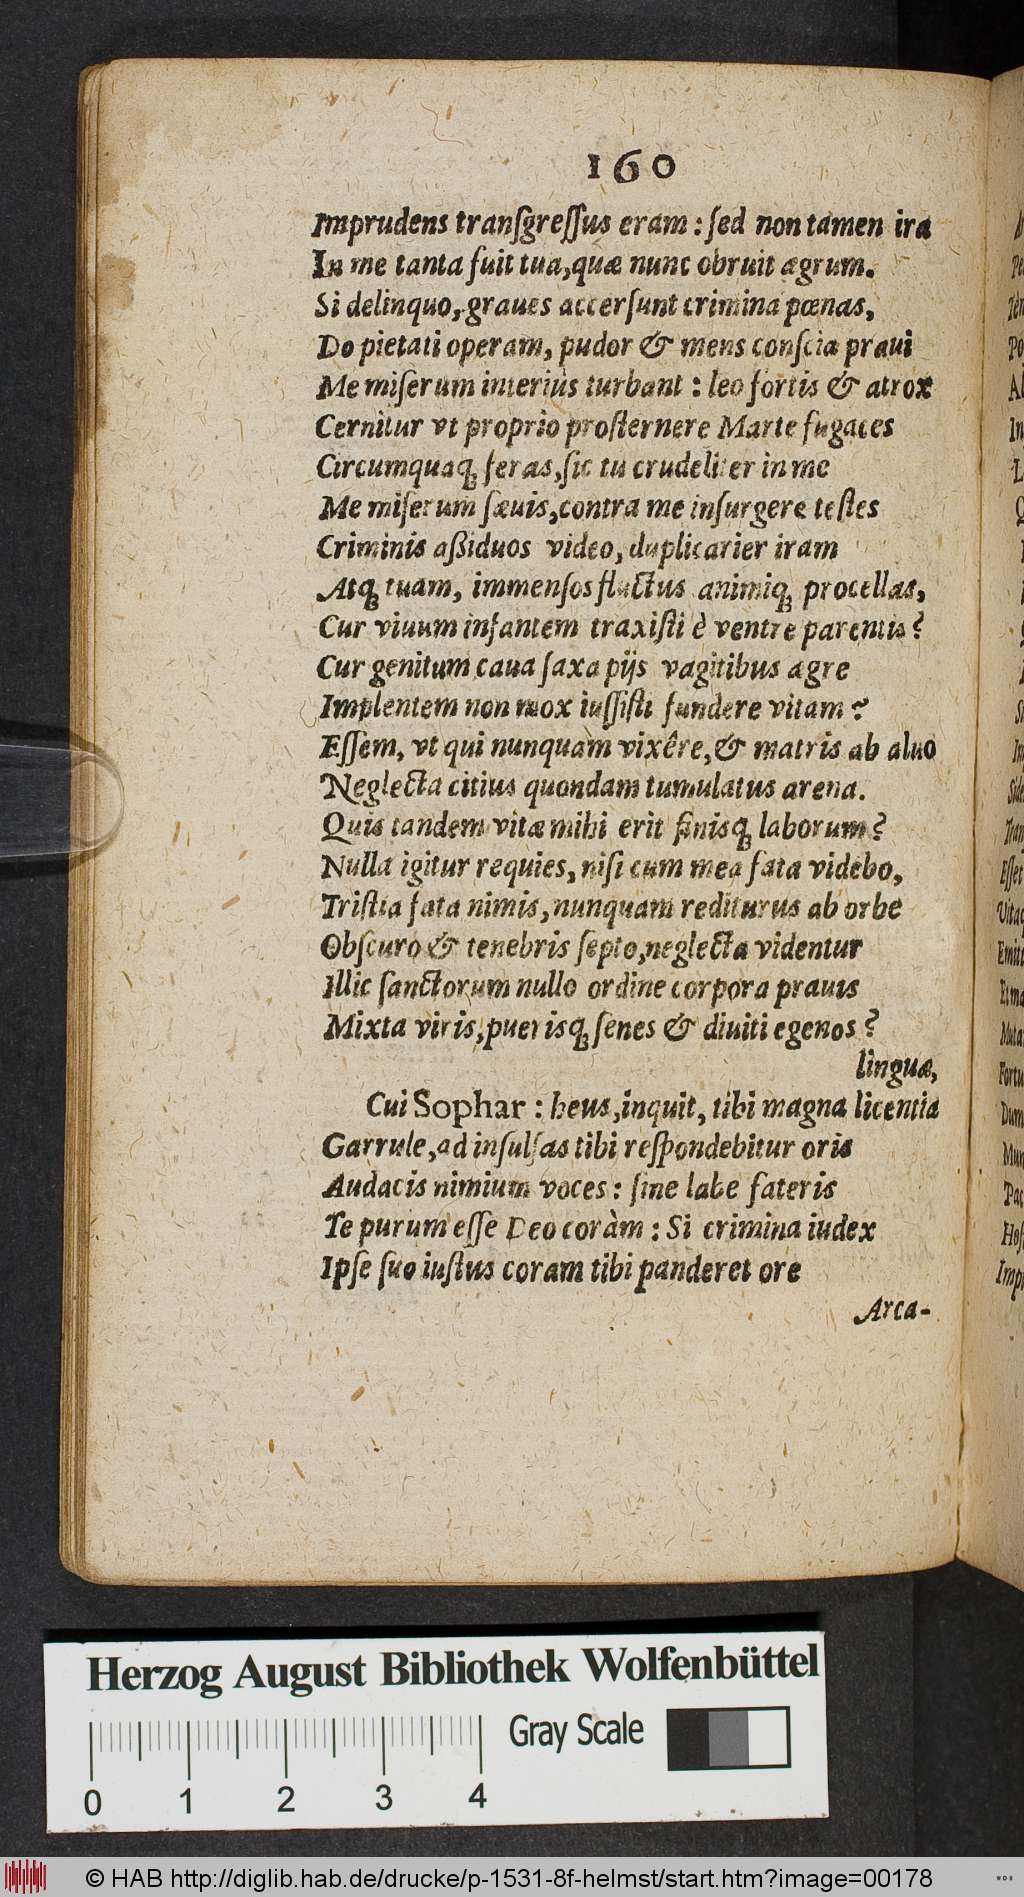 160
Imprudens tranſgreſſus eram: ſed non tamen ira
In me tanta fuit tua, quæ nunc obruit ægrum.
Si delinquo, graues accerſunt crimina pœnas,
Do pietati operam, pudor & mens conſcia praui
Me miſerum interiùs turbant: leo fortis & atrox
Cernitur vt proprio proſternere Marte fugaces
Circumquaq; feras, ſic tu crudeliter in me
Me miſerum ſæuis, contra me inſurgere teſtes
Criminis aßiduos video, duplicarier iram
Atq; tuam, immenſos fluctus animiq; procellas,
Cur viuum infantem traxiſti è ventre parentis?
Cur genitum caua ſaxa pijs vagitibus ægre
Implentem non mox iuſſiſti fundere vitam?
Eſſem, vt qui nunquam vixêre, & matris ab aluo
Neglecta citius quondam tumulatus arena.
Quis tandem vitæ mihi erit finisq; laborum?
Nulla igitur requies, niſi cum mea fata videbo,
Triſtia fata nimis, nunquam rediturus ab orbe
Obſcuro & tenebris ſepto, neglecta videntur
Illic ſanctorum nullo ordine corpora prauis
Mixta viris, puerisq; ſenes & diuiti egenos?
linguæ,
Cui Sophar: heus, inquit, tibi magna licentia
Garrule, ad inſulſas tibi reſpondebitur oris
Audacis nimium voces: ſine labe fateris
Te purum eſſe Deo coràm: Si crimina iudex
Ipſe ſuo iuſtus coram tibi panderet ore
Arca-
Herzog August Bibliothek Wolfenbüttel
Gray Scale
0 1 2 3 4
© HAB http://diglib.hab.de/drucke/p-1531-8f-helmst/start.htm?image=00178